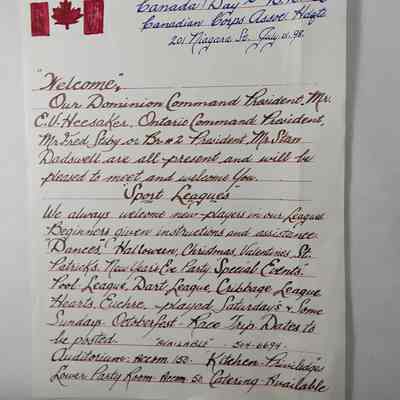 Canada Day
Canadian Corps Assoc.
201 Niagara St. July 11. 98.
"Welcome",
Our Dominion Command President, Mr.
C.V. Heesaker, Ontario Command President,
Mr Fred, or Br#2 President, Mr Stan
Dadswell are all present and will be
pleased to meet and welcome you.
"Sport Leagues"
We always welcome new players in our Leagues
Beginners given instructions and assistance.
"Dances" Halloween, Christmas, Valentines, St.
Patricks, New Years Eve Party, Special Events.
Pool League, Dart, League, Cribbage League
Hearts, Euchre, played, Saturday's & Some
Sundays. Octoberfest - Race Trip Dates to
be posted. "AVAILABLE" 504-6694.
Auditorium - Accom 150. Kitchen Priviledges
Lower Party Room - Accom. 50 Catering Available